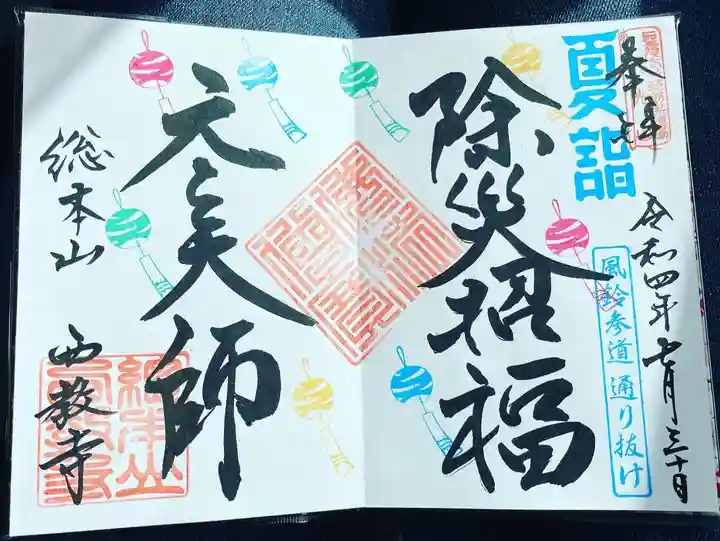 奉拝
夏詣
令和四年七月三十日
風鈴参道 通り抜け
除災招福
元三大師
総本山
西教寺